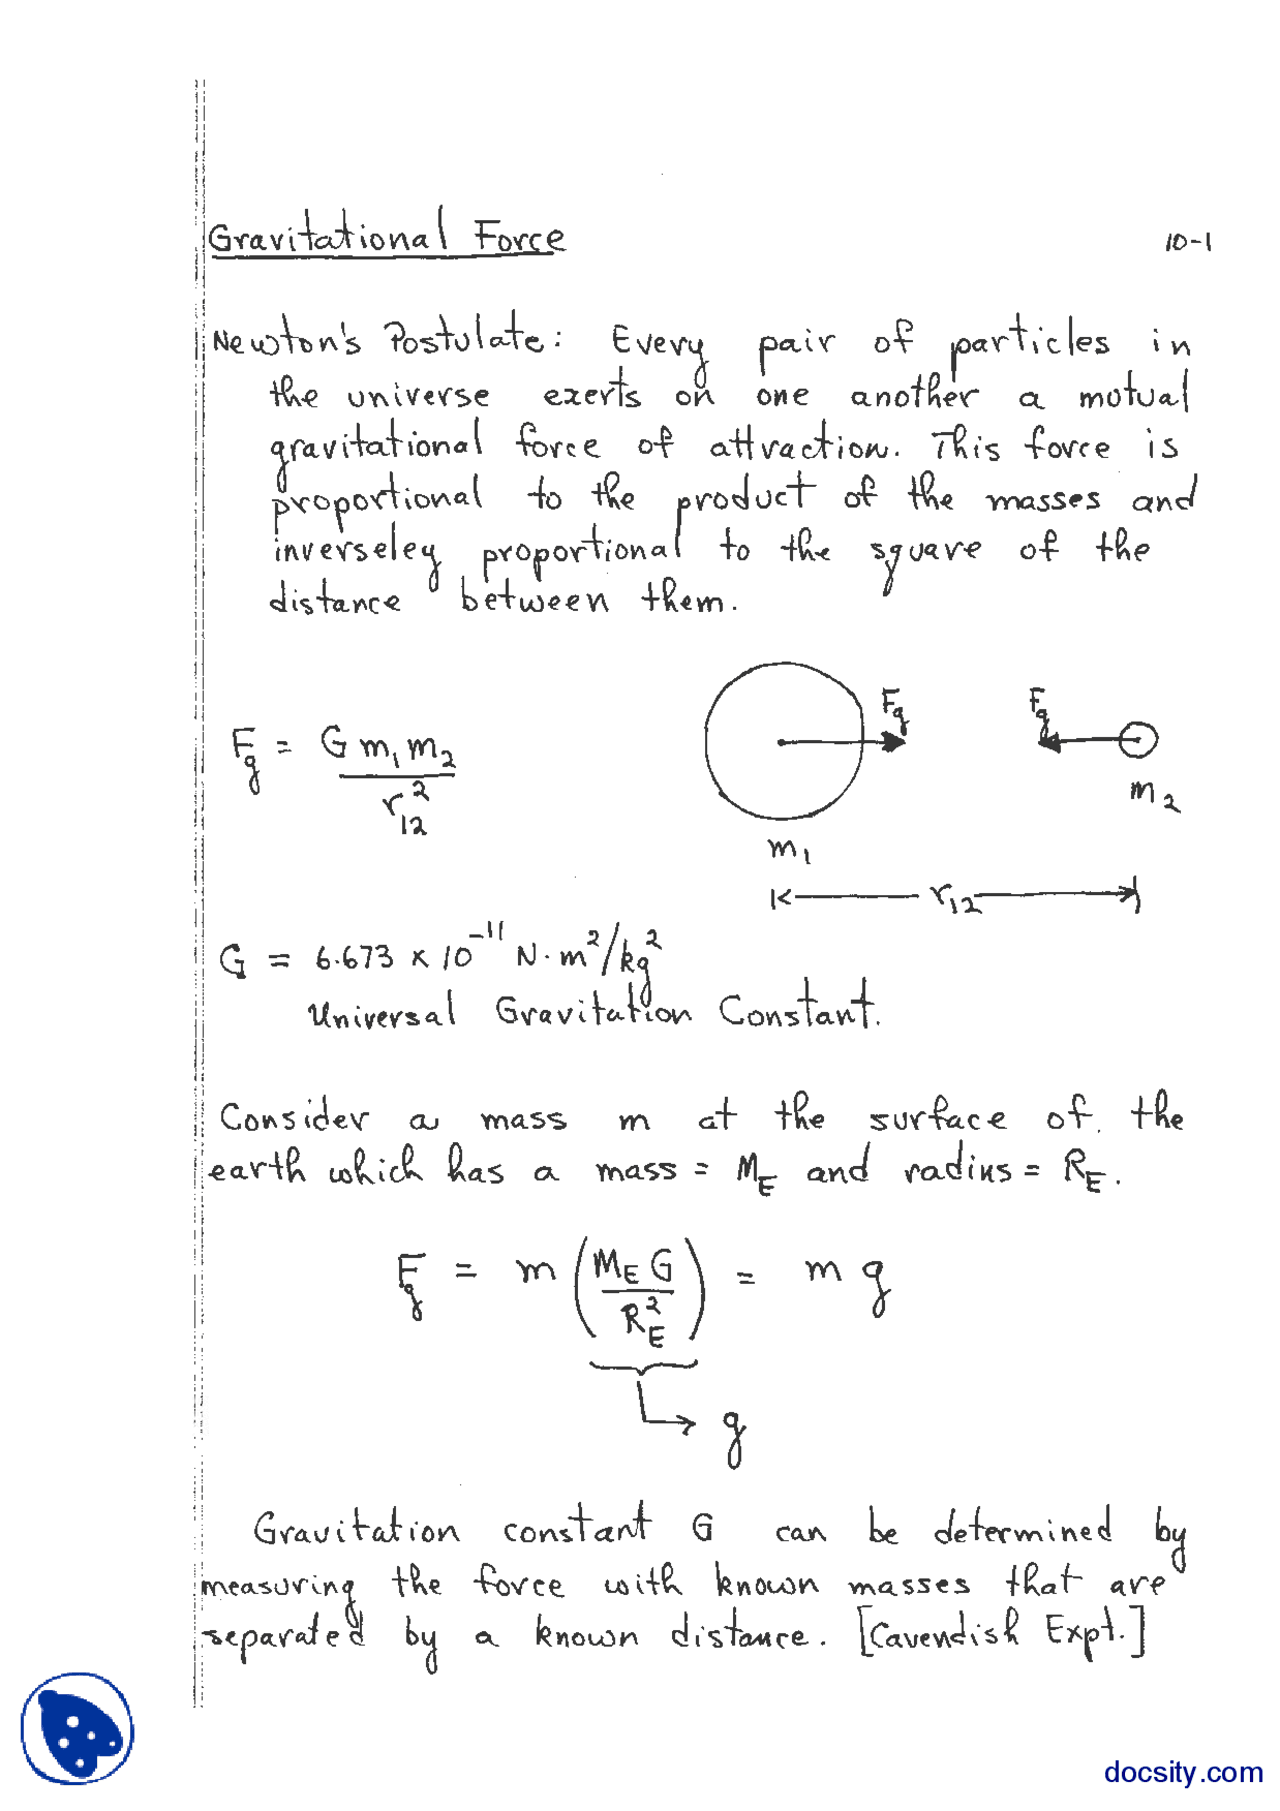 Gravitational Force
10-1
Newton's Postulate: Every pair of particles in
the universe exerts on one another a mutual
gravitational force of attraction. This force is
proportional to the product of the masses and
inverseley proportional to the square of the
distance between them.
F_g = G m_1 m_2 / r_12^2
F_g F_g
m_2
m_1
r_12
G = 6.673 × 10^-11 N·m^2/kg^2
Universal Gravitation Constant.
Consider a mass m at the surface of the
earth which has a mass = M_E and radius = R_E.
F_g = m (M_E G / R_E^2) = m g
g
Gravitation constant G can be determined by
measuring the force with known masses that are
separated by a known distance. [Cavendish Expt.]
docsity.com